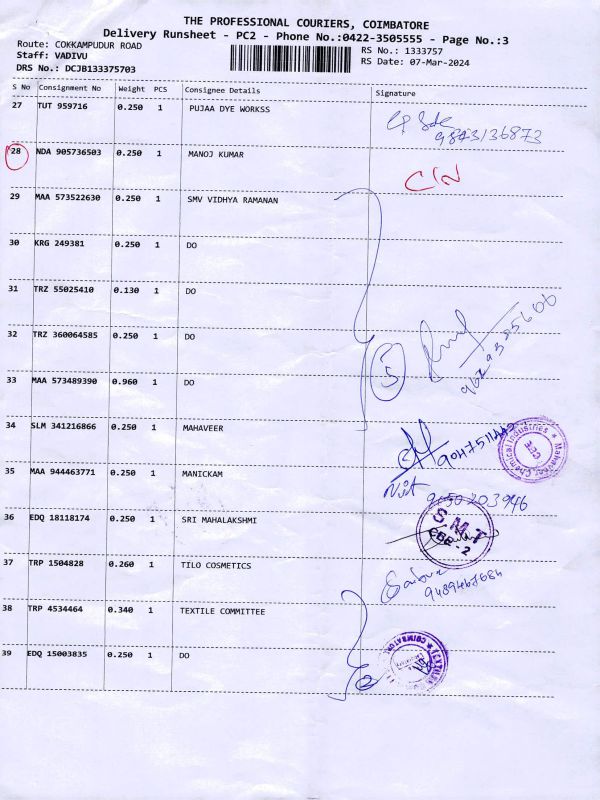 THE PROFESSIONAL COURIERS, COIMBATORE
Delivery Runsheet - PC2 - Phone No.:0422-3505555 - Page No.:3
Route: COKKAMPUDUR ROAD
RS No.: 1333757
Staff: VADIVU
RS Date: 07-Mar-2024
DRS No.: DCJB133375703
S No Consignment No Weight PCS Consignee Details Signature
27 TUT 959716 0.250 1 PUJAA DYE WORKSS
9843136873
28 NDA 905736503 0.250 1 MANOJ KUMAR
C/N
29 MAA 573522630 0.250 1 SMV VIDHYA RAMANAN
30 KRG 249381 0.250 1 DO
31 TRZ 55025410 0.130 1 DO
32 TRZ 360064585 0.250 1 DO
5
33 MAA 573489390 0.960 1 DO
34 SLM 341216866 0.250 1 MAHAVEER
Mahaveer Chemical Industries
35 MAA 944463771 0.250 1 MANICKAM
9050203946
36 EDQ 18118174 0.250 1 SRI MAHALAKSHMI
S.M.T
CBE - 2
37 TRP 1504828 0.260 1 TILO COSMETICS
9489467684
38 TRP 4534464 0.340 1 TEXTILE COMMITTEE
39 EDQ 15003835 0.250 1 DO
2